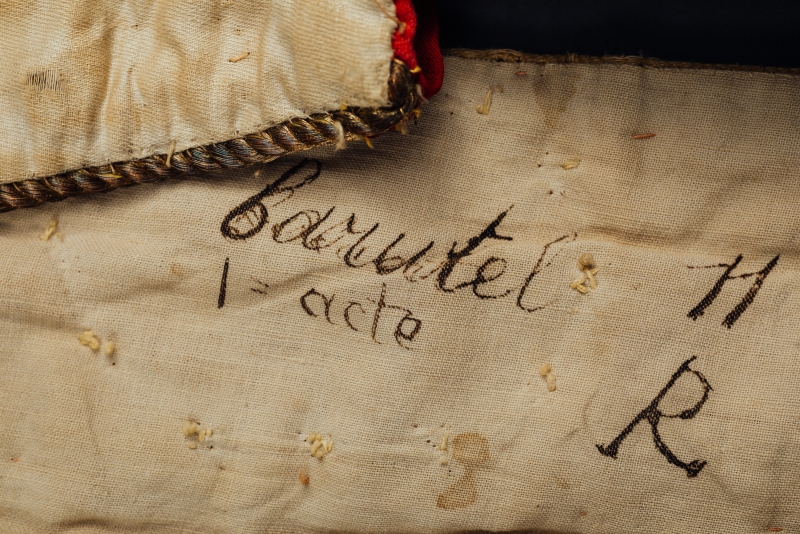 Barutel
1= acte
H
R